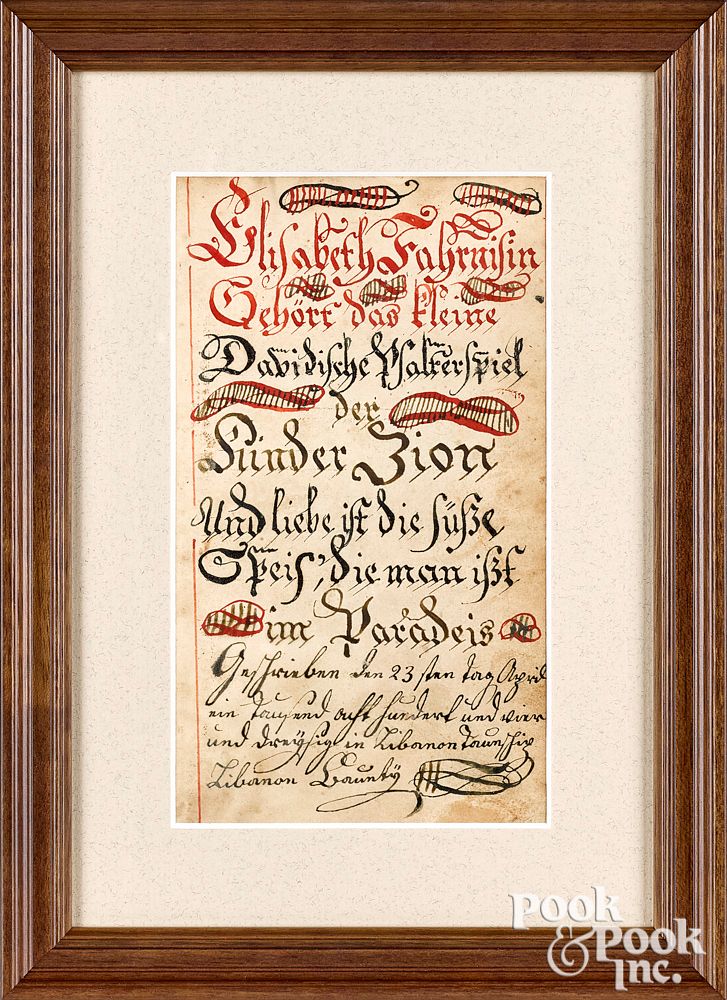 Elisabeth Fahrnisin
Gehört das kleine
Davidische Psalterspiel
der
Künder Zion
Und liebe ist die süße
Speis, die man ißt
im Paradeis
Geschrieben den 23sten Tag April
ein tausend acht hundert und vier
und dreysig in Libanon Taunschip
Libanon Caunty
POOK
& POOK
INC.